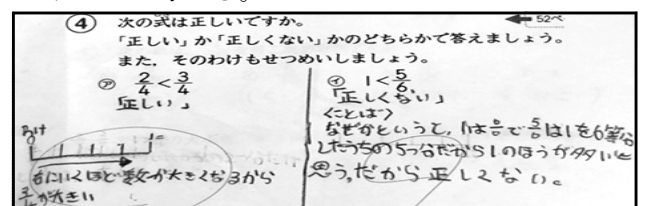 ④ 次の式は正しいですか。
52ペ
「正しい」か「正しくない」かのどちらかで答えましょう。
また，そのわけもせつめいしましょう。
㋐ 2/4 < 3/4
「正しい」
右にいくほど数が大きくなるから
が大きい
㋑ 1 < 5/6
「正しくない」
〈ことば〉
なぜかというと、1は6/6で5/6は1を6等分
したうちの5つ分だから1のほうが大いと
思う。だから正しくない。